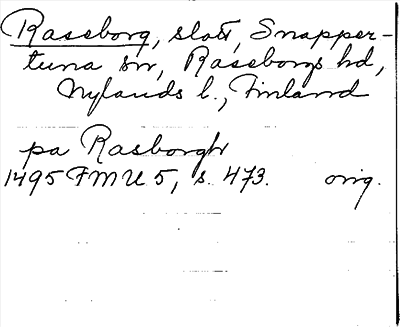 Raseborg, slott, Snapper-
tuna sn, Raseborgs hd,
Nylands l., Finland
pa Rasborgh
1495 FMU 5, s. 473. orig.